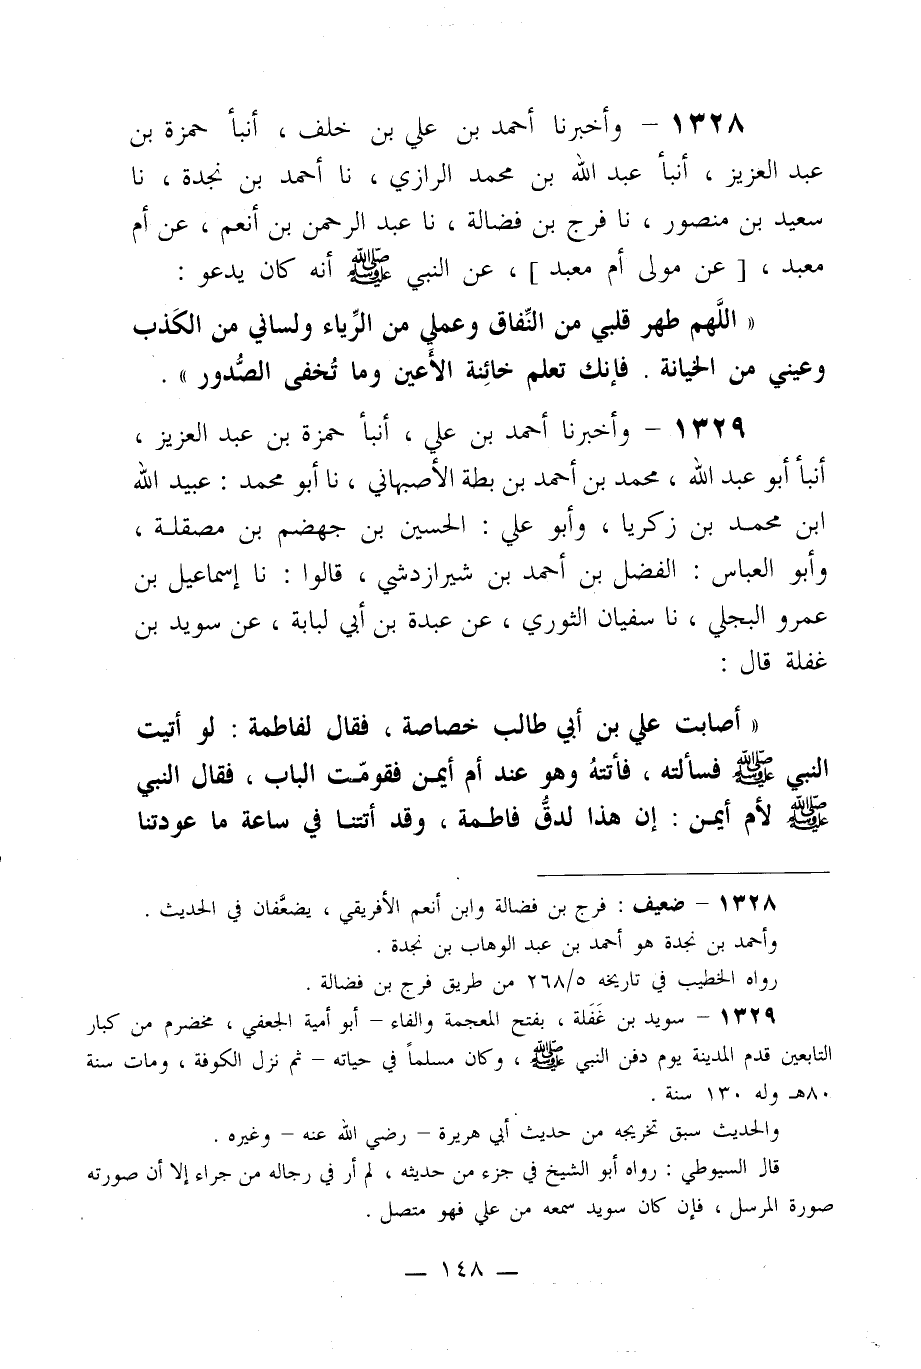 ١٣٢٨ – وأخبرنا أحمد بن علي بن خلف ، أنبأ حمزة بن
عبد العزيز ، أنبأ عبد الله بن محمد الرازي ، نا أحمد بن نجدة ، نا
سعيد بن منصور ، نا فرج بن فضالة ، نا عبد الرحمن بن أنعم ، عن أم
معبد ، [ عن مولى أم معبد ] ، عن النبي ﷺ أنه كان يدعو :
« اللَّهم طهر قلبي من النِّفاق وعملي من الرِّياء ولساني من الكَذب
وعيني من الخيانة . فإنك تعلم خائِنة الأَعين وما تُخفى الصُّدور » .
١٣٢٩ – وأخبرنا أحمد بن علي ، أنبأ حمزة بن عبد العزيز ،
أنبأ أبو عبد الله ، محمد بن أحمد بن بطة الأصبهاني ، نا أبو محمد : عبيد الله
ابن محمد بن زكريا ، وأبو علي : الحسين بن جهضم بن مصقلة ،
وأبو العباس : الفضل بن أحمد بن شيرازدشي ، قالوا : نا إسماعيل بن
عمرو البجلي ، نا سفيان الثوري ، عن عبدة بن أبي لبابة ، عن سويد بن
غفلة قال :
« أصابت علي بن أبي طالب خصاصة ، فقال لفاطمة : لو أتيت
النبي ﷺ فسألته ، فأتتهُ وهو عند أم أيمن فقومّت الباب ، فقال النبي
ﷺ لأم أيمن : إن هذا لدقُّ فاطمة ، وقد أتتنا في ساعة ما عودتنا
١٣٢٨ – ضعيف : فرج بن فضالة وابن أنعم الأفريقي ، يضعَّفان في الحديث .
وأحمد بن نجدة هو أحمد بن عبد الوهاب بن نجدة .
رواه الخطيب في تاريخه ٢٦٨/٥ من طريق فرج بن فضالة .
١٣٢٩ – سويد بن غَفَلة ، بفتح المعجمة والفاء – أبو أمية الجعفي ، مخضرم من كبار
التابعين قدم المدينة يوم دفن النبي ﷺ ، وكان مسلماً في حياته – ثم نزل الكوفة ، ومات سنة
٨٠هـ وله ١٣٠ سنة .
والحديث سبق تخريجه من حديث أبي هريرة – رضي الله عنه – وغيره .
قال السيوطي : رواه أبو الشيخ في جزء من حديثه ، لم أر في رجاله من جراء إلا أن صورته
صورة المرسل ، فإن كان سويد سمعه من علي فهو متصل .
– ١٤٨ –